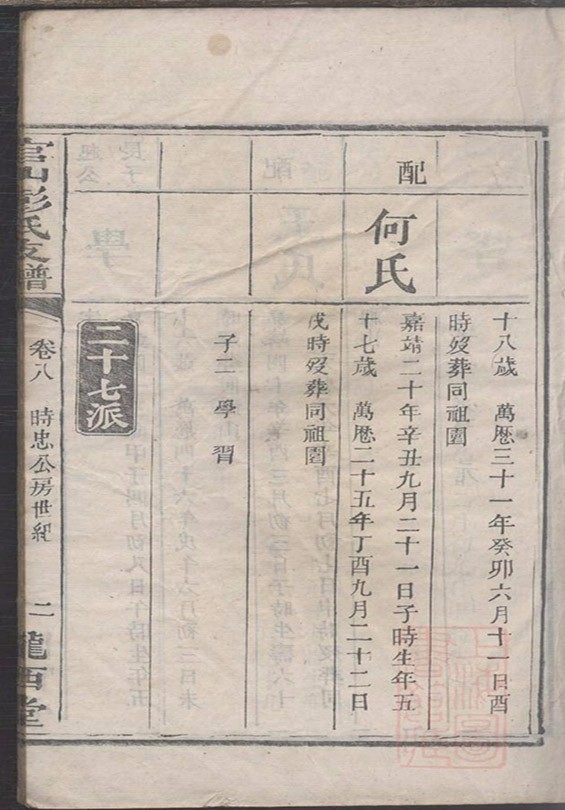 十八歲 萬歷三十一年癸卯六月十一日酉
時歿葬同祖園
配 何氏
嘉靖二十年辛丑九月二十一日子時生年五
十七歲 萬歷二十五年丁酉九月二十二日
戌時歿葬同祖園
子二 學 習
二十七派
官山彭氏支譜 卷八 時忠公房世紀 二 隴西堂